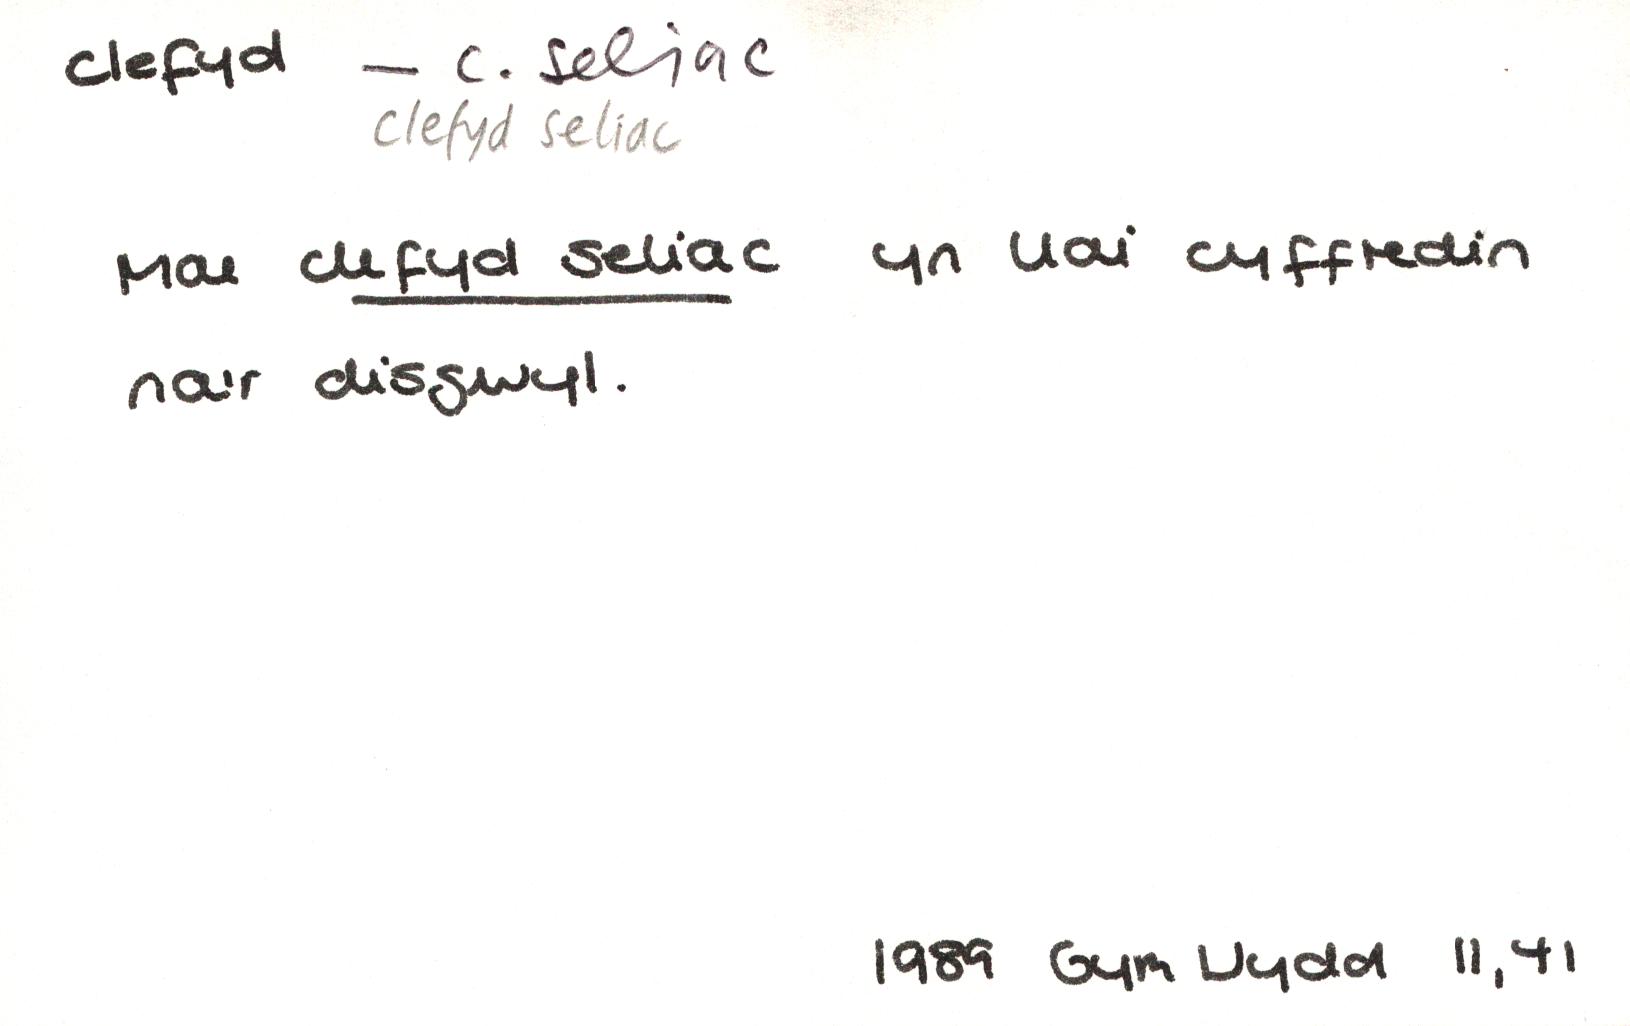 clefyd — c. seliac
clefyd seliac
Mae clefyd seliac yn llai cyffredin
na'r disgwyl.
1989 Gym Wydd 11, 41